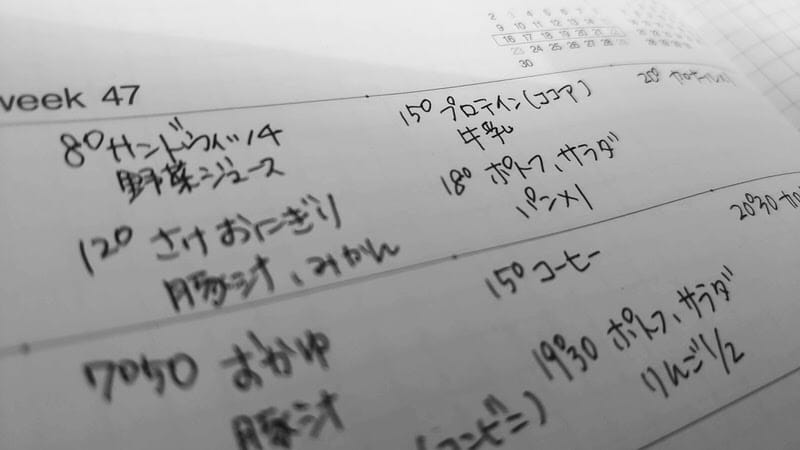 2 3 4 5 6 7 8
9 10 11 12 13 14 15
16 17 18 19 20 21 22
23 24 25 26 27 28 29
30
week 47
8⁰ サンドウィッチ
野菜ジュース
12⁰ さけおにぎり
豚汁、みかん
15⁰ プロテイン(ココア)
牛乳
18⁰ ポトフ、サラダ
パン×1
20⁰
7⁰50 おかゆ
豚汁
(コンビニ)
15⁰ コーヒー
19⁰30 ポトフ、サラダ
りんご1/2
20⁰30